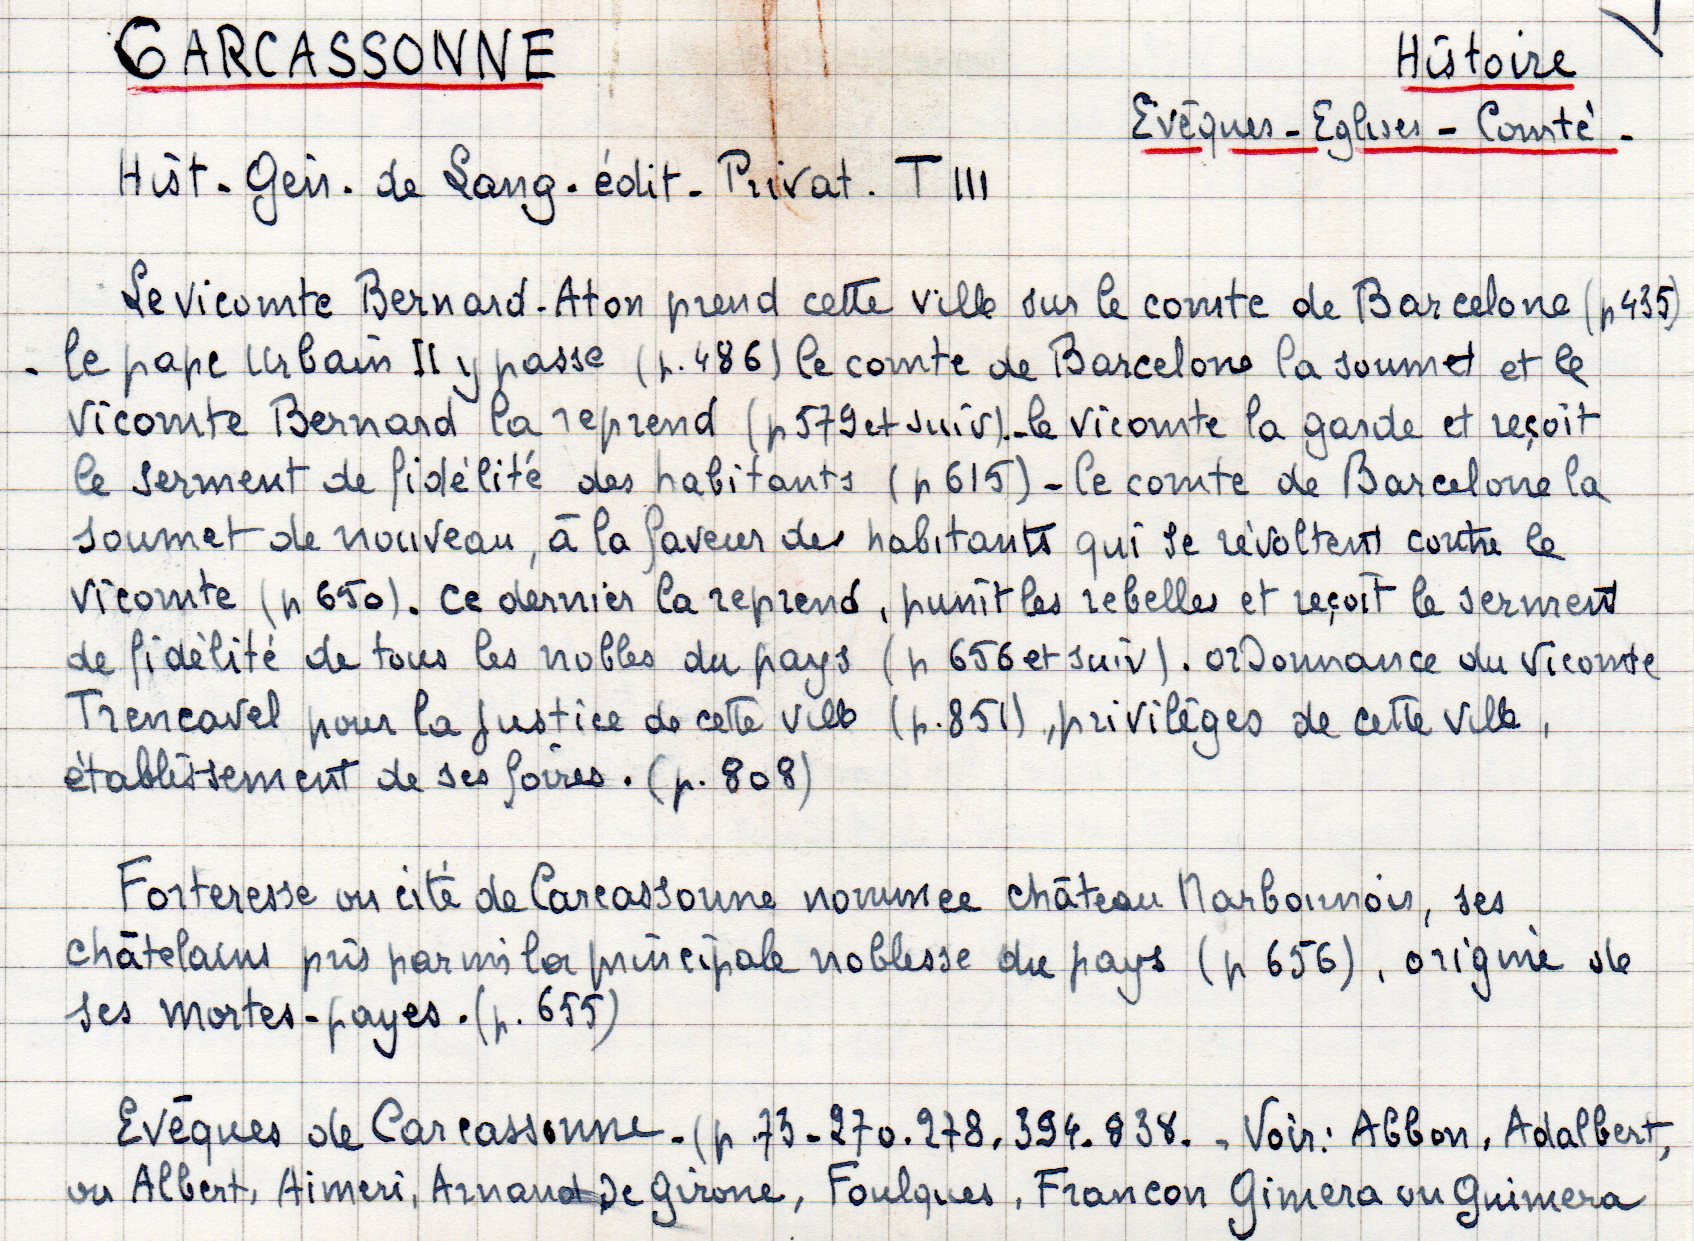 CARCASSONNE
Histoire
Evêques - Eglises - Comté -
Hist. Gén. de Lang. édit. Privat. T III
Le vicomte Bernard-Aton prend cette ville sur le comte de Barcelone (p 435)
- le pape Urbain II y passe (p. 486) le comte de Barcelone la soumet et le
vicomte Bernard la reprend (p 579 et suiv). - le vicomte la garde et reçoit
le serment de fidélité des habitants (p 615) - le comte de Barcelone la
soumet de nouveau, à la faveur des habitants qui se révoltent contre le
vicomte (p 650). ce dernier la reprend, punit les rebelles et reçoit le serment
de fidélité de tous les nobles du pays (p 656 et suiv). ordonnance du vicomte
Trencavel pour la justice de cette ville (p. 851), privilèges de cette ville,
établissement de ses foires. (p. 808)
Forteresse ou cité de Carcassonne nommée château Narbonnois, ses
châtelains pris parmi la principale noblesse du pays (p 656), origine de
ses mortes-payes. (p. 655)
Evêques de Carcassonne. - (p. 73 - 270. 278. 394. 838. - Voir: Abbon, Adalbert,
ou Albert, Aimeri, Arnaud de Girone, Foulques, Francon Gimera ou Guimera